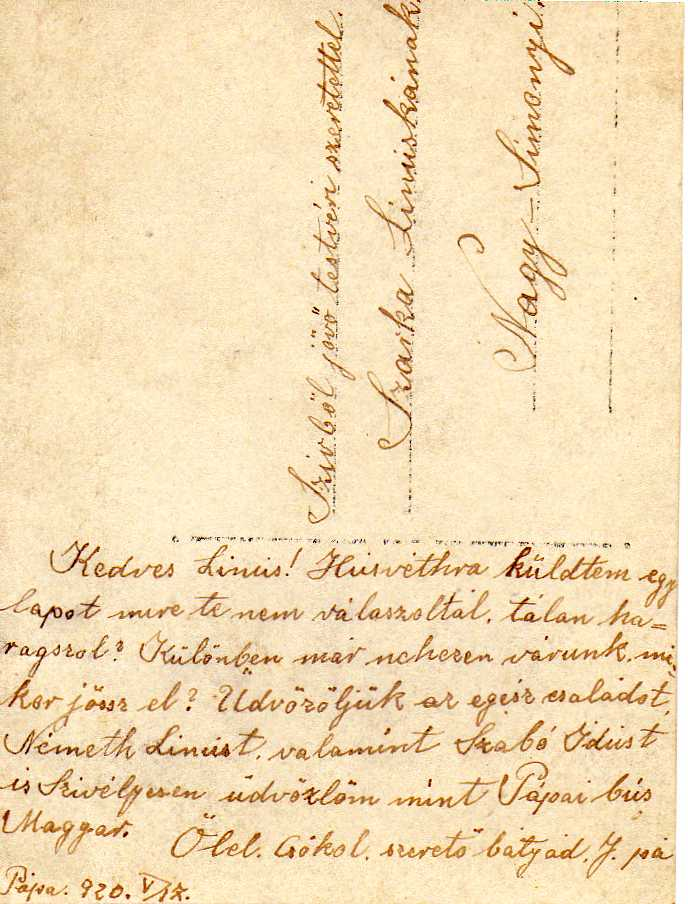 Szivből jövő testvéri szeretettel.
Szaika Linuskának
Nagy-Simonyi.
Kedves Linus! Húsvéthra küldtem egy
lapot mire te nem válaszoltál. tálan ha=
ragszol? Különben már nehezen várunk, mi-
kor jössz el? Üdvözöljük az egész családot,
Németh Linust, valamint Szabó Idust
is Szivélyesen üdvözlöm mint Pápai bús
Magyar.
Ölel. Csókol. szerető bátyád. J. pá
Pápa. 920. V/17.